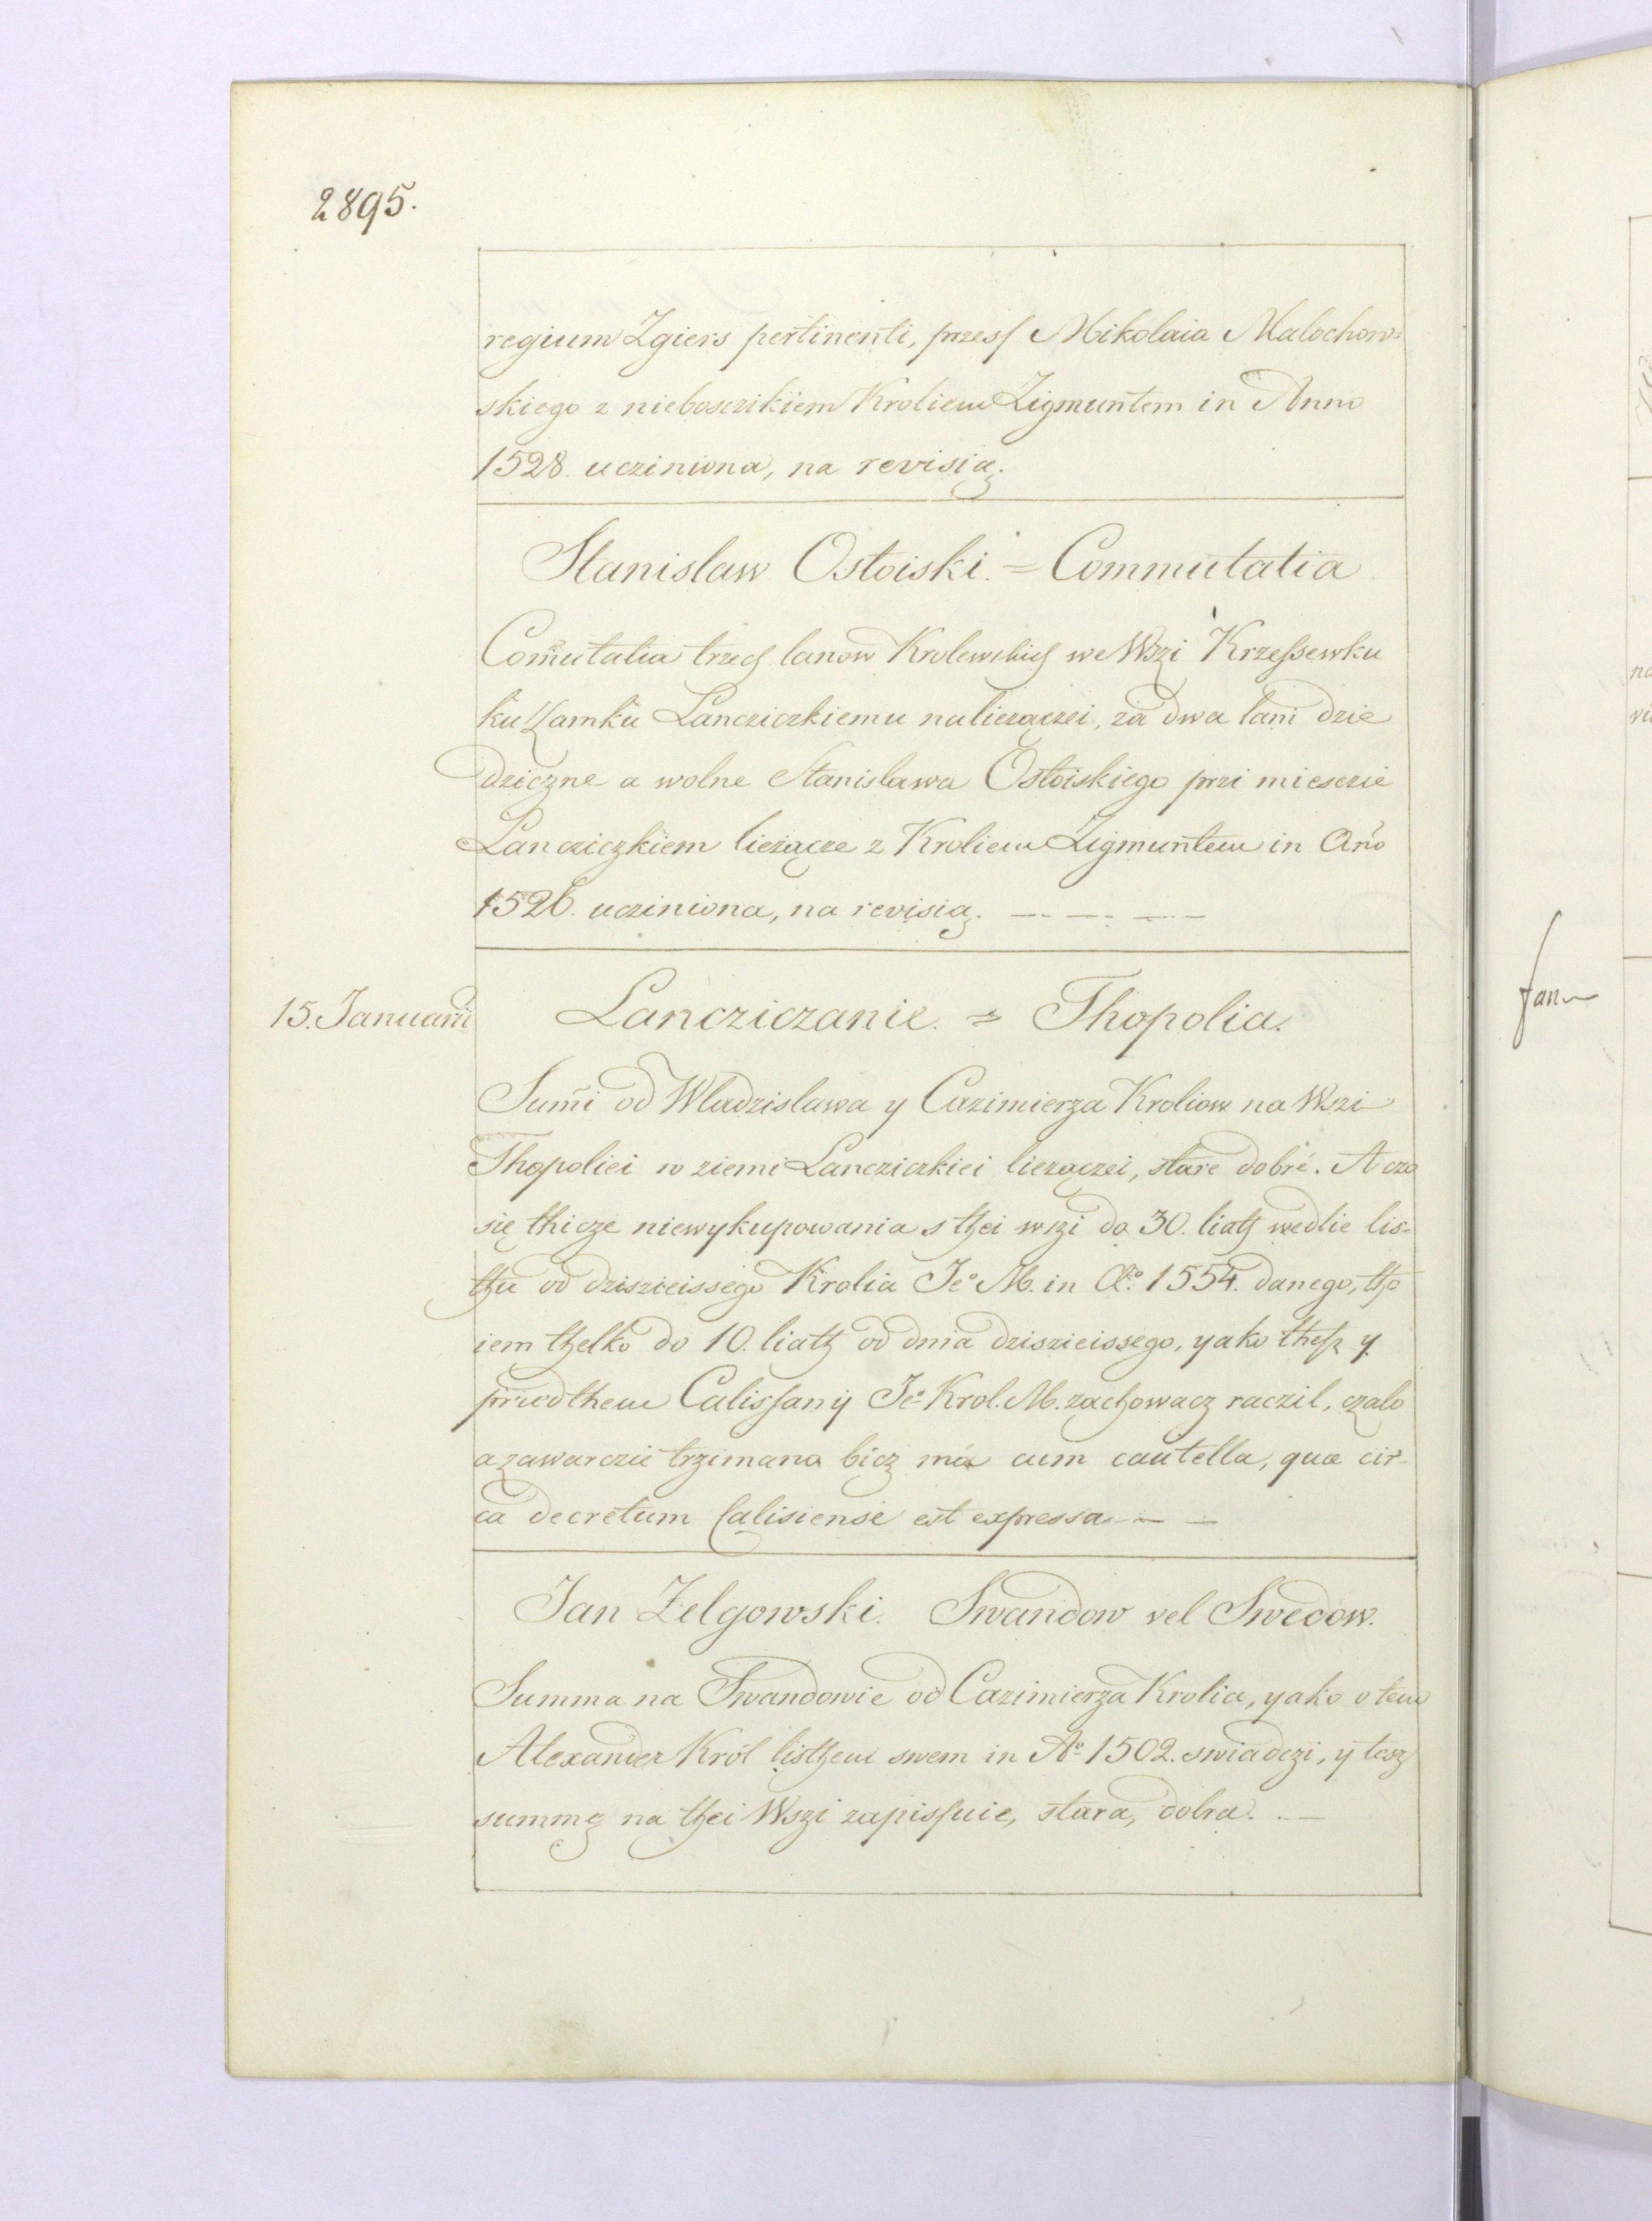 2895.
regium Zgiers pertinenti, przesſ Mikolaia Malochow=
skiego z nieboszczikiem Kroliem Zigmuntem in Anno
1528. ucziniona, na revisią.
Stanislaw Ostoiski. = Commutatia
Com̃utatia trzech lanow Krolewskich we Wszi Krzeſsewku
ku Zamku Lancziczkiemu naliezączei, za dwa lani dzie
dziczne a wolne Stanislawa Ostoiskiego przi miesczie
Lancziczkiem liezącze z Kroliem Zigmuntem in Ano
1526. ucziniona, na revisią. — — — —
15. Januarii
Lancziczanie. = Thopolia.
Sum̃i od Wladzislawa y Cazimierza Kroliow na Wszi
Thopoliei w ziemi Lancziczkiei liezączei, stare dobre. A czo
się thicze niewykupowania s thei wszi do 30. liath wedlie lis-
thu od dziszieissego Krolia Je° M. in A°. 1554. danego, tho
iem thelko do 10. liath od dnia dziszieissego, yako theſz y
przedthem Calisſany Je° Krol. M. zachowacz raczil, czalo
a zawarczie trzimana bicz ma cum cautella, quæ cir-
ca decretum Calisiense est expressa — —
Jan Zelgowski. Swandow vel Swedow.
Summa na Swandowie od Cazimierza Krolia, yako o tem
Alexander Król listhem swem in A° 1502. swiadczi, y tesz
summę na thei Wszi zapisſuie, stara, dobra. —